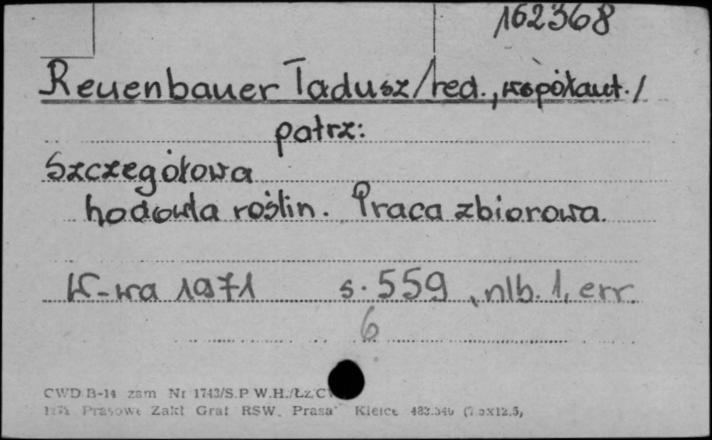 162368
Reuenbauer Tadusz/red., współaut./
patrz:
Szczegółowa
hodowla roślin. Praca zbiorowa.
W-wa 1971 s. 559, nlb. 1, err.
6
CWD B-14 zam Nr 1743/S.P W.H./Łz.
Prasowe Zakł Graf RSW. Prasa" Kielce